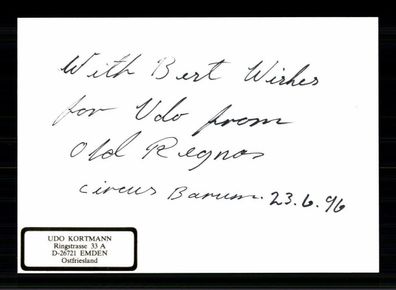 With Best Wishes
for Udo from
Old Regnas
Circus Barum. 23.6.96
UDO KORTMANN
Ringstrasse 33 A
D-26721 EMDEN
Ostfriesland